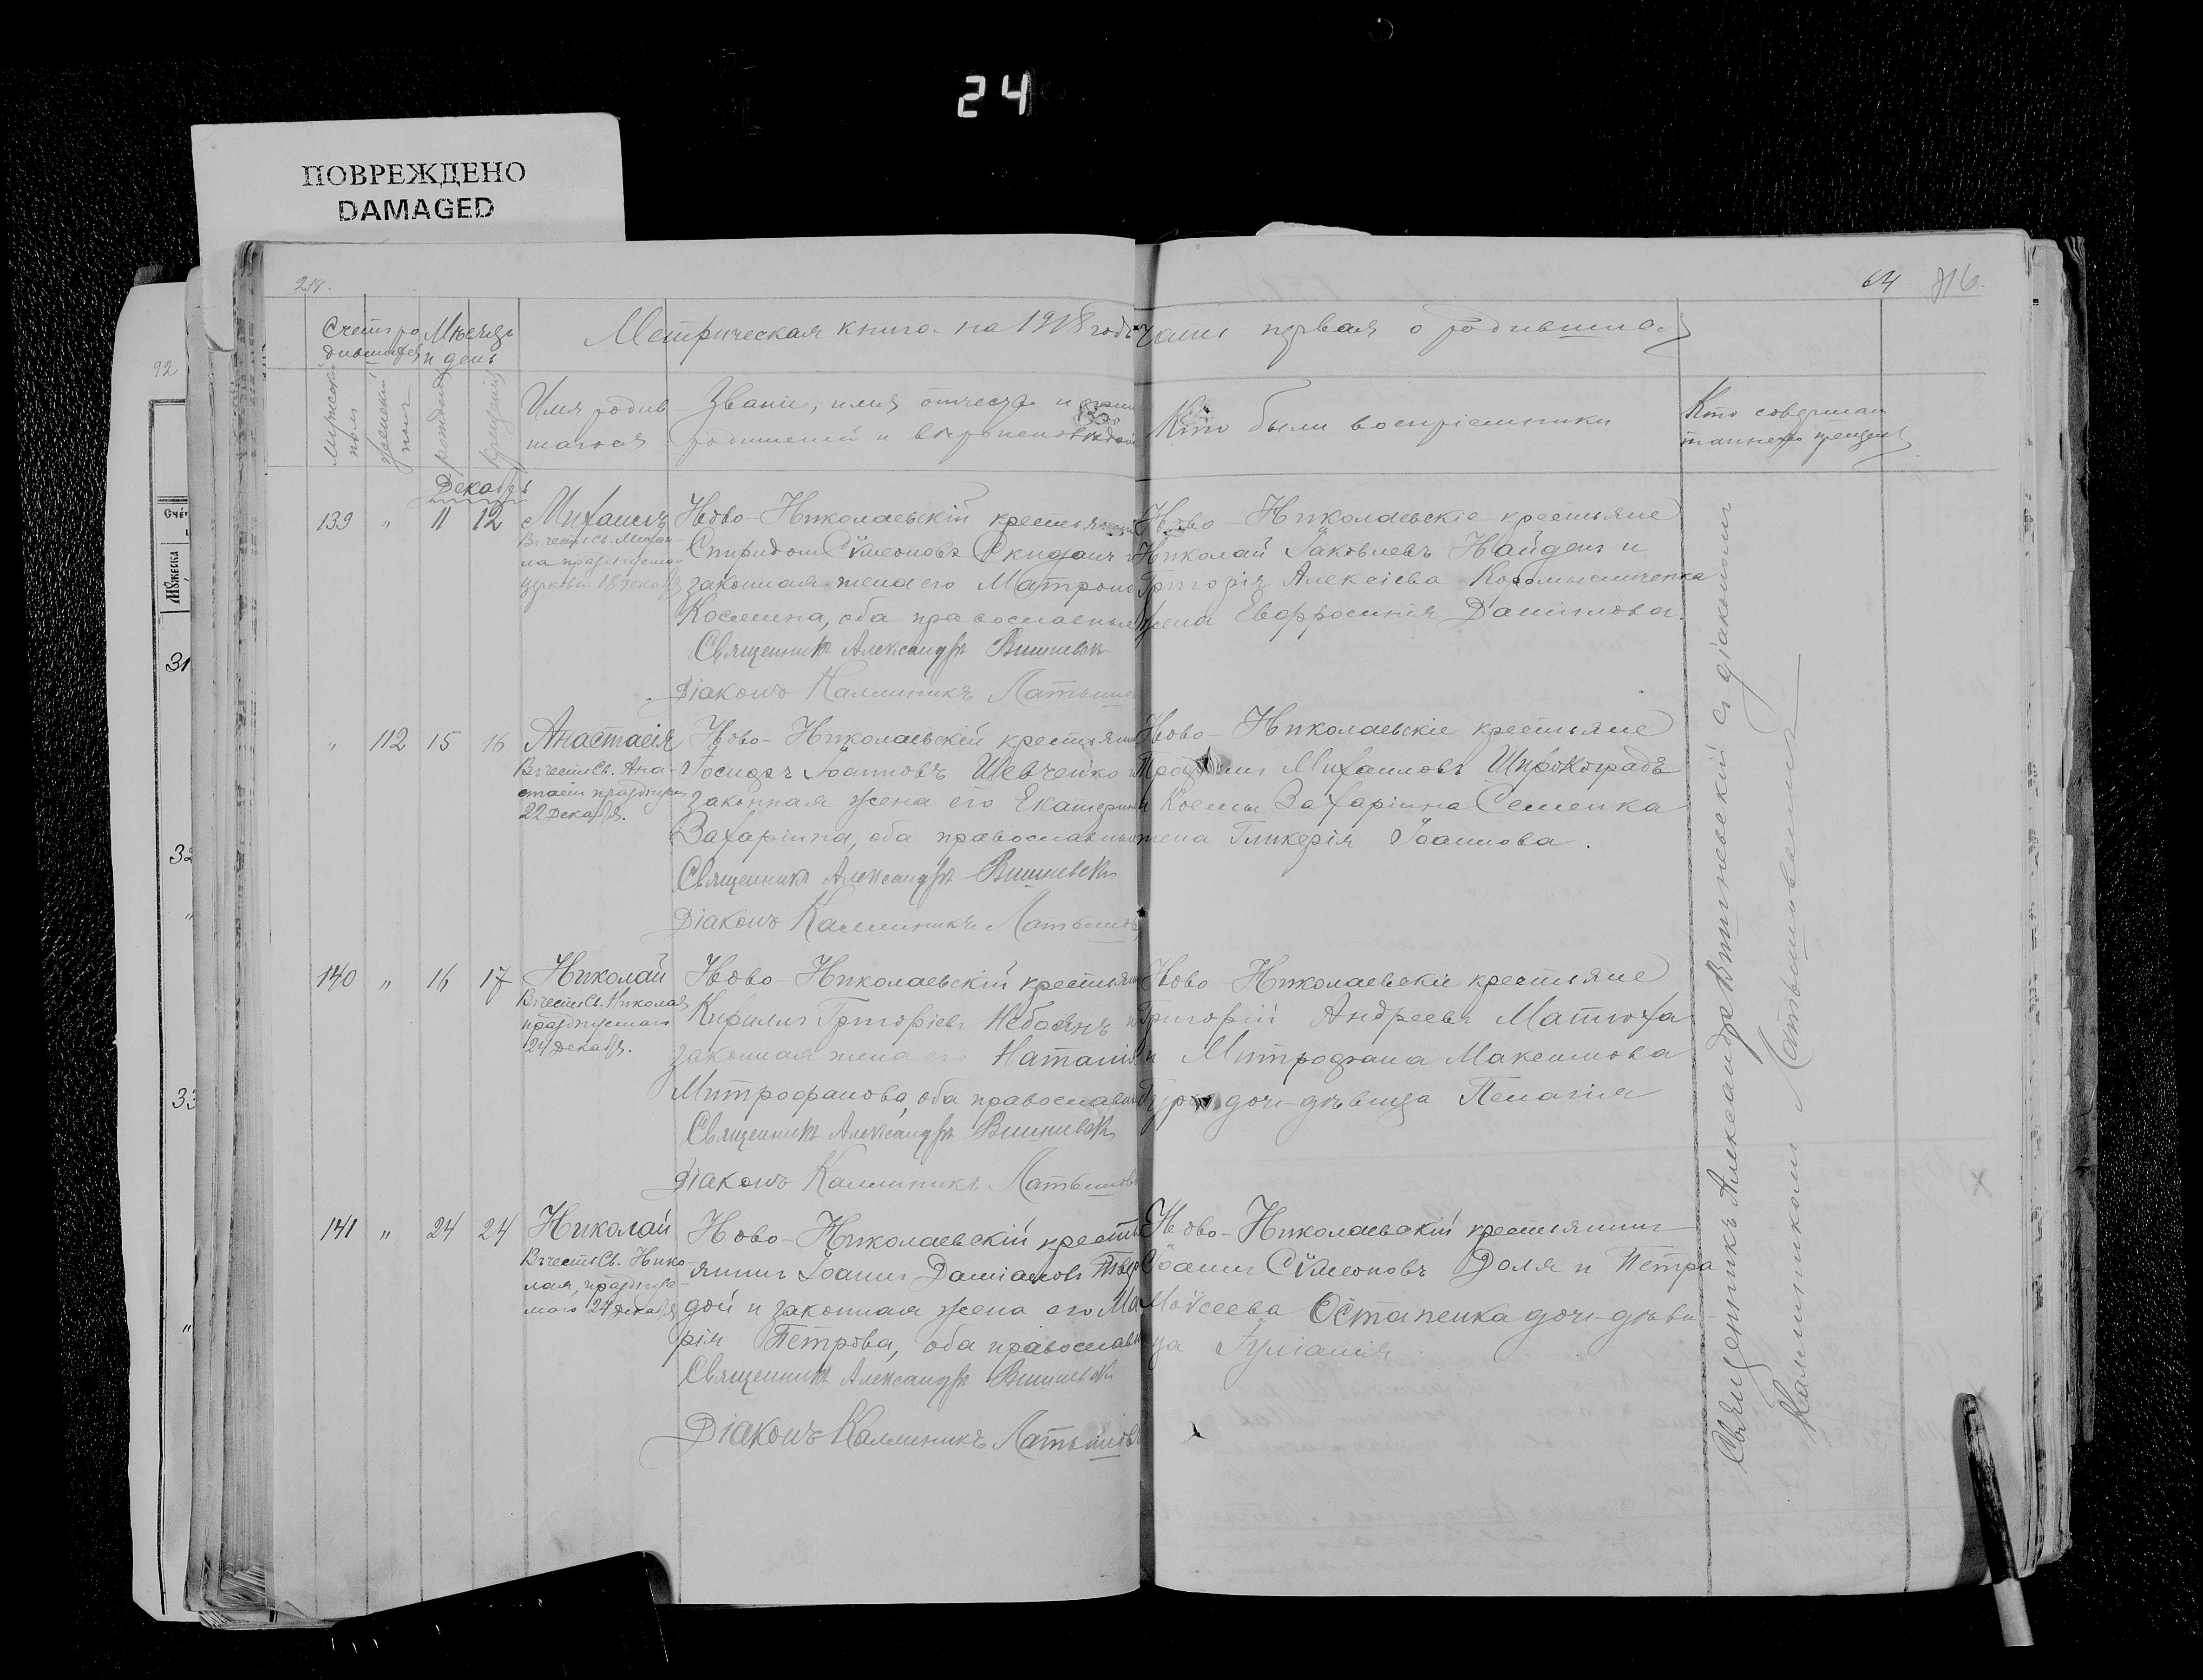 24
ПОВРЕЖДЕНО
DAMAGED
219.
64 816.
92
Счетъ ро
дившихся
Мѣсяцъ
и день
Метрическая книга на 1918 годъ
часть первая о родившихся
Мужескій
полъ
Женскій
полъ
рожденія
крещенія
Имя родив
шагося
Званіе, имя отчество и
родителей и вѣроисповѣданія
Кто были воспріемники
Кто совершалъ
таинство крещенія
Декабрь
139 " 11 12
Михаилъ
Въ честь Св. Михаи-
ла празднуемаго
церковью 18 декабря
Ново-Николаевскій крестьянинъ
Спиридонъ Сѵмеоновъ Скиданъ и
законная жена его Матрона
Космина, оба православные
Священникъ Александръ Вишневск
Діаконъ Каллиникъ Латышов
Ново-Николаевскіе крестьяне
Николай Іаковлевъ Найденъ и
Григорія Алексіева Коромысличенка
жена Евфросинія Даниилова.
" 112 15 16
Анастасія
Въ честь Св. Ана-
стасіи празднуем
22 Декабря.
Ново-Николаевскій крестьянинъ
Іосифъ Іоанновъ Шевченко и
законная жена его Екатерина
Захаріина, оба православные
Священникъ Александръ Вишневск
Діаконъ Каллиникъ Латышовъ
Ново-Николаевскіе крестьяне
Михаиловъ Широкоградъ
и Космы Захаріина Семенка
жена Гликерія Іоаннова.
140 " 16 17
Николай
Въ честь Св. Николая
празднуемаго
24 Декабря.
Ново-Николаевскій крестьянинъ
Кириллъ Григоріевъ и
законная жена его Наталія
Митрофанова, оба православные
Священникъ Александръ Вишневск
Діаконъ Каллиникъ Латышовъ
Ново-Николаевскіе крестьяне
Григорій Андреевъ Матюха
и Митрофана Максимова
дочь-дѣвица Пелагія
141 " 24 24
Николай
Въ честь Св. Нико-
лая, празднуе-
маго 24 Декабря
Ново-Николаевскій кресть
янинъ Іоаннъ Даміановъ Твер
дой и законная жена его Ма
рія Петрова, оба православн
Священникъ Александръ Вишневск
Діаконъ Каллиникъ Латышовъ
Ново-Николаевскій крестьянинъ
Іоаннъ Сѵмеоновъ Доля и Петра
Моѵсеева Остапенка дочь-дѣви-
ца Іуліанія
Священникъ Александръ Вишневскій съ діакономъ
Каллиникомъ Латышовымъ
Счет
Мужеска
31
32
"
33
"